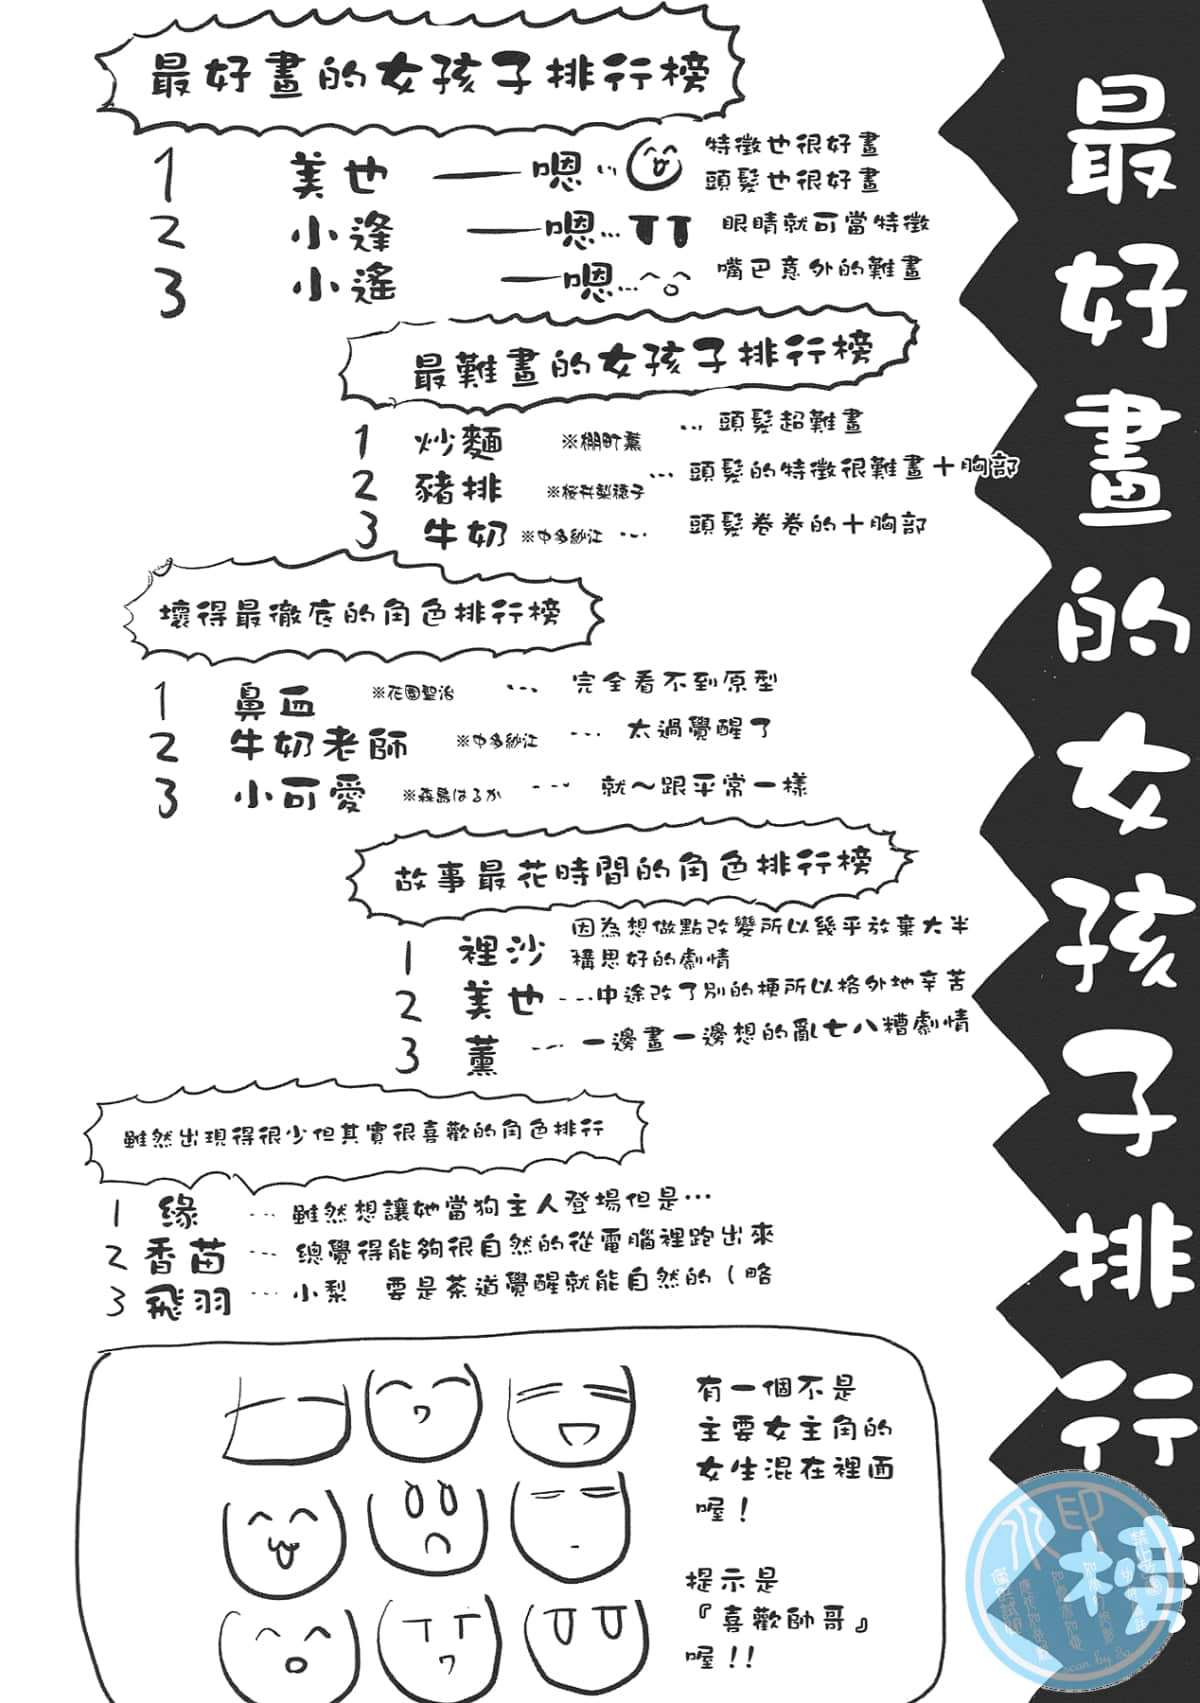 最好畫的女孩子排行榜
最好畫的女孩子排行榜
1 美也 ——嗯… 特徵也很好畫
頭髮也很好畫
2 小逢 ——嗯… 眼睛就可當特徵
3 小遙 ——嗯… 嘴巴意外的難畫
最難畫的女孩子排行榜
1 炒麵 ※棚町薫 … 頭髮超難畫
2 豬排 ※桜井梨穂子 … 頭髮的特徵很難畫+胸部
3 牛奶 ※中多紗江 … 頭髮卷卷的+胸部
壞得最徹底的角色排行榜
1 鼻血 ※花園聖治 … 完全看不到原型
2 牛奶老師 ※中多紗江 … 太過覺醒了
3 小可愛 ※森島はるか … 就～跟平常一樣
故事最花時間的角色排行榜
1 裡沙 因為想做點改變所以幾乎放棄大半
構思好的劇情
2 美也 …中途改了別的梗所以格外地辛苦
3 薰 … 一邊畫一邊想的亂七八糟劇情
雖然出現得很少但其實很喜歡的角色排行
1 緣 … 雖然想讓她當狗主人登場但是…
2 香苗 … 總覺得能夠很自然的從電腦裡跑出來
3 飛羽 … 小梨 要是茶道覺醒就能自然的（略
有一個不是
主要女主角的
女生混在裡面
喔！
提示是
『喜歡帥哥』
喔！！
水印